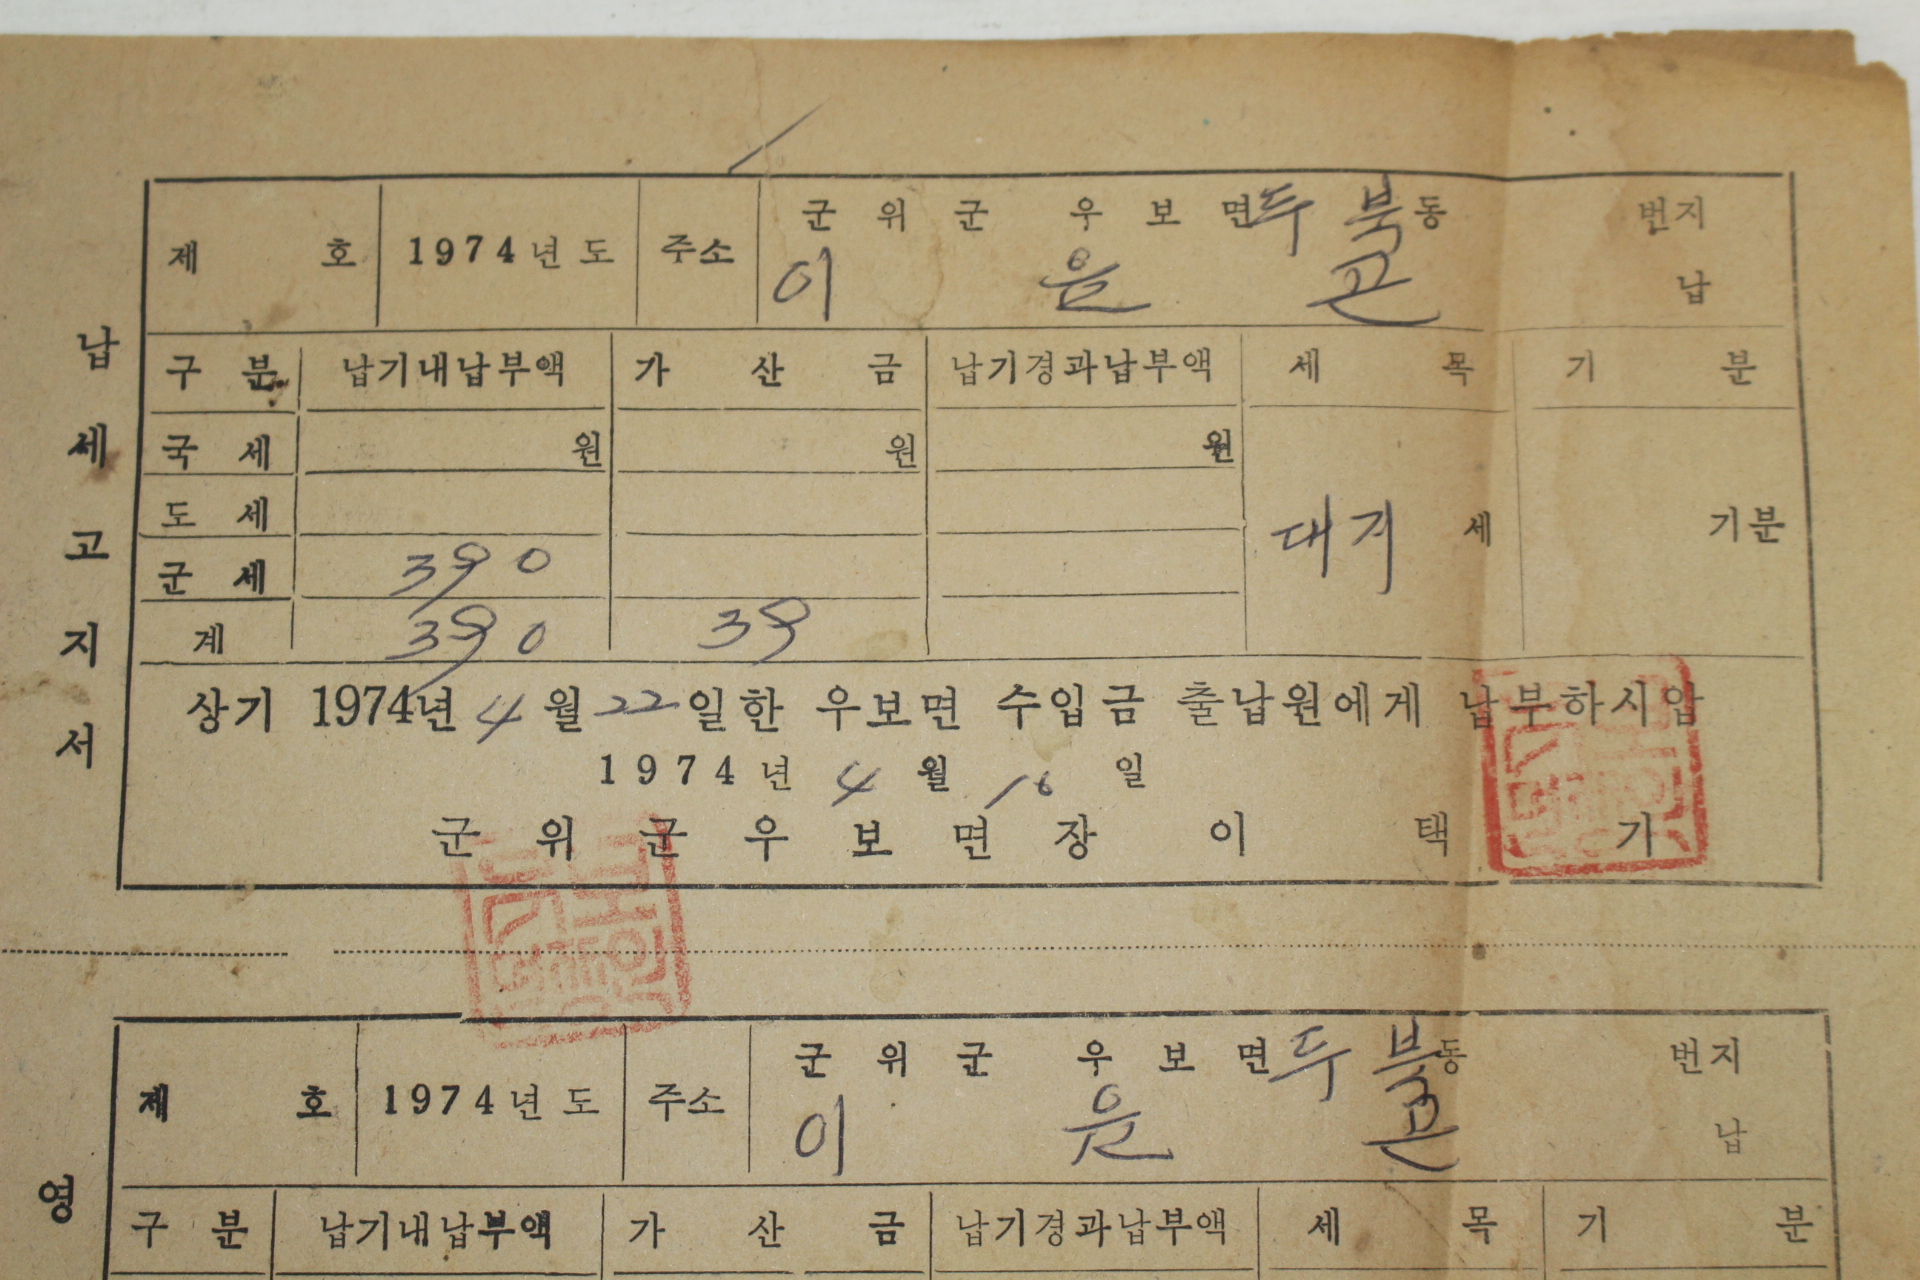 납세고지서
제 호 1974년도 주소 군위군 우보면 두북동 번지
이 을 곤 납
구분 납기내납부액 가산금 납기경과납부액 세목 기분
국세 원 원 원
도세
대지 세 기분
군세 390
계 390 39
상기 1974년 4월 22일한 우보면 수입금 출납원에게 납부하시압
1974년 4월 16일
군위군우보면장 이택기
영
제 호 1974년도 주소 군위군 우보면 두북동 번지
이 을 곤 납
구분 납기내납부액 가산금 납기경과납부액 세목 기분